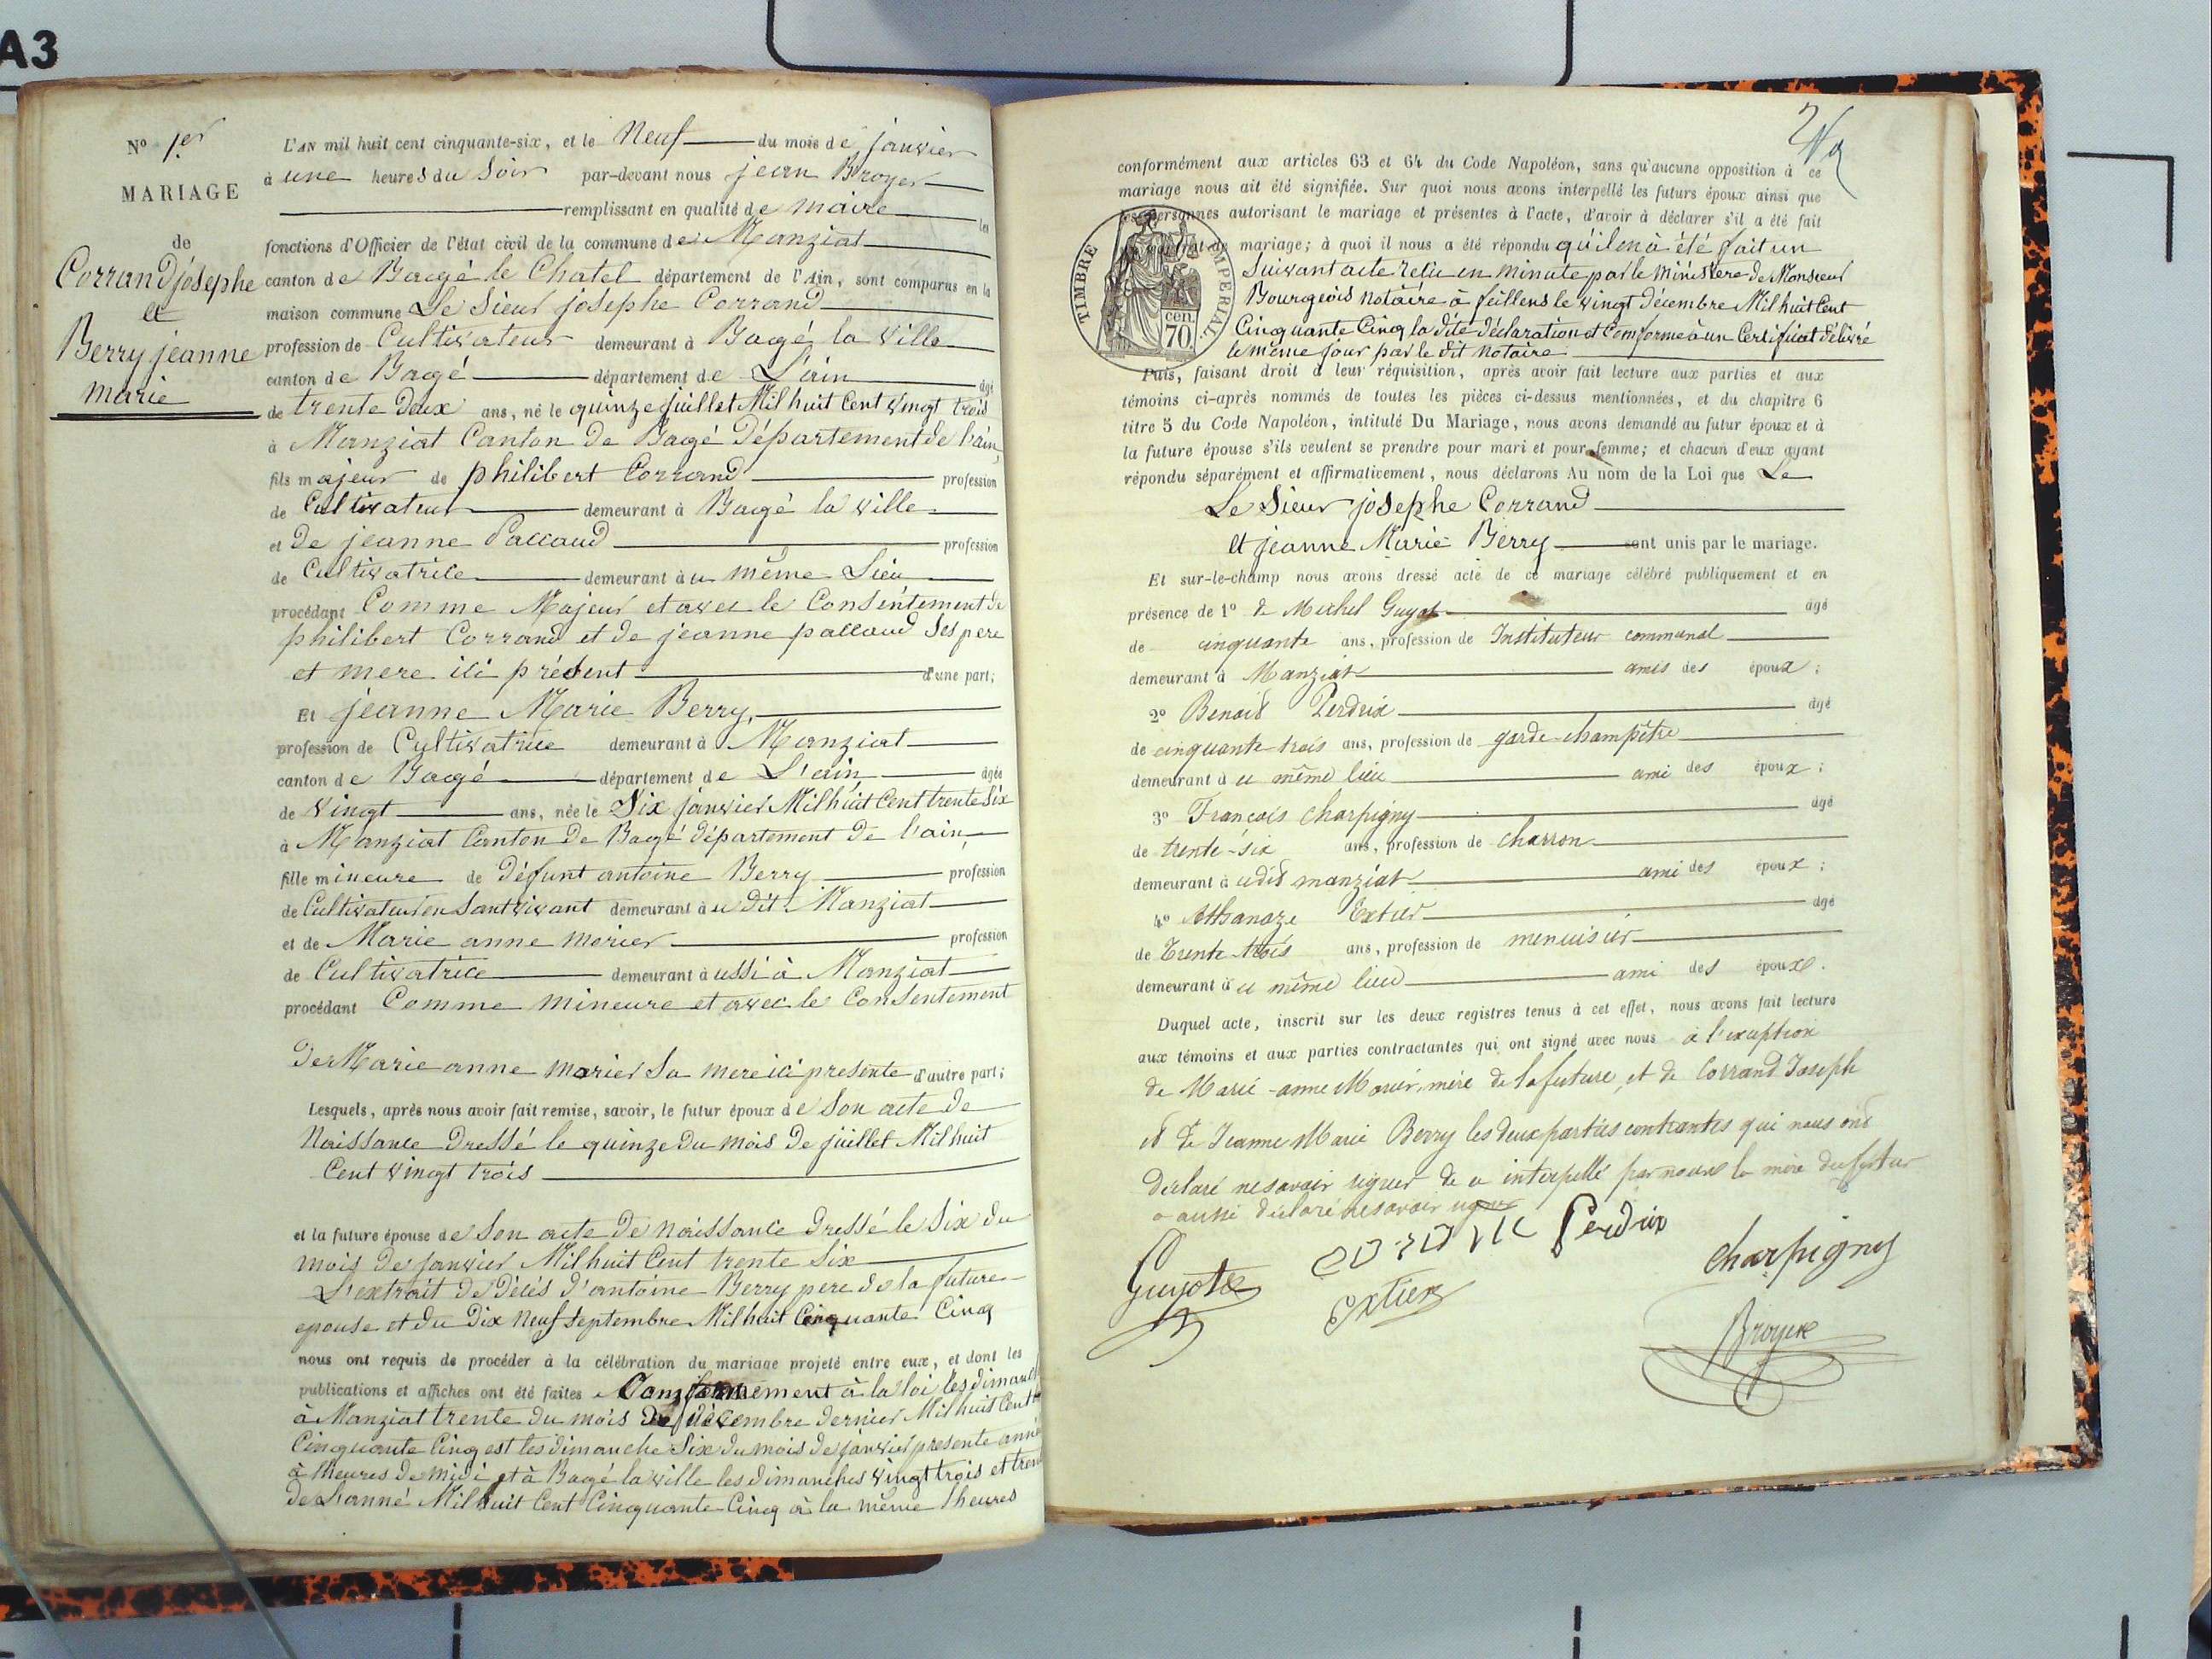 A3
N° 1er
MARIAGE
de
Corrand josephe
et
Berry jeanne
marie
L'AN mil huit cent cinquante-six, et le Neuf du mois de janvier
à une heures du Soir par-devant nous jean Broyer
remplissant en qualité de maire les
fonctions d'Officier de l'état civil de la commune de Manziat
canton de Bagé le Chatel département de l'Ain, sont comparus en la
maison commune Le Sieur josephe Corrand
profession de Cultivateur demeurant à Bagé la Ville
canton de Bagé département de L'ain âgé
de trente deux ans, né le quinze juillet Mil huit Cent vingt trois
à Manziat Canton de Bagé Département de l'ain,
fils majeur de philibert Corrand profession
de Cultivateur demeurant à Bagé la ville
et de jeanne Paccaud profession
de Cultivatrice demeurant au même Lieu
procédant Comme Majeur et avec le Consentement de
philibert Corrand et de jeanne paccaud Ses pere
et mere ici présent d'une part;
Et jeanne Marie Berry,
profession de Cultivatrice demeurant à Manziat
canton de Bagé département de L'ain âgée
de vingt ans, née le Six janvier Mil huit Cent trente Six
à Manziat Canton de Bagé département de l'ain,
fille mineure de défunt antoine Berry profession
de Cultivateur en Sant vivant demeurant au dit Manziat
et de Marie anne morier profession
de Cultivatrice demeurant aussi à Manziat
procédant Comme mineure et avec le Consentement
De Marie anne morier Sa mere ici presente d'autre part;
Lesquels, après nous avoir fait remise, savoir, le futur époux de Son acte de
Naissance Dressé le quinze Du mois De juillet Mil huit
Cent vingt trois
et la future épouse de Son acte De Naissance Dressé le Six du
mois De janvier Mil huit Cent trente Six
L'extrait De Décés D'antoine Berry pere de la future
epouse et du Dix Neuf Septembre Mil huit Cinquante Cinq
nous ont requis de procéder à la célébration du mariage projeté entre eux, et dont les
publications et affiches ont été faites Conformément à la loi les dimanch
à Manziat trente du mois de décembre dernier Mil huit Cent
Cinquante Cinq est les dimanche Six du mois de janvier presente anné
à 1 heures De midi et à Bagé la ville les dimanches vingt trois et trent
de L'anné Mil huit Cent Cinquante Cinq à la même 1 heures
conformément aux articles 63 et 64 du Code Napoléon, sans qu'aucune opposition à ce
mariage nous ait été signifiée. Sur quoi nous avons interpellé les futurs époux ainsi que
les personnes autorisant le mariage et présentes à l'acte, d'avoir à déclarer s'il a été fait
mariage; à quoi il nous a été répondu qu'il en à été fait un
TIMBRE IMPERIAL
cen.
70.
Suivant acte reçu en minute par le Ministere de Monsieur
Bourgeois Notaire à feillens le vingt décembre Mil huit Cent
Cinquante Cinq la dite déclaration et Comforme à un Certificat délivré
le même jour par le dit Notaire
Puis, faisant droit à leur réquisition, après avoir fait lecture aux parties et aux
témoins ci-après nommés de toutes les pièces ci-dessus mentionnées, et du chapitre 6
titre 5 du Code Napoléon, intitulé Du Mariage, nous avons demandé au futur époux et à
la future épouse s'ils veulent se prendre pour mari et pour femme; et chacun d'eux ayant
répondu séparément et affirmativement, nous déclarons Au nom de la Loi que Le
Le Sieur josephe Corrand
et jeanne Marie Berry sont unis par le mariage.
Et sur-le-champ nous avons dressé acte de ce mariage célébré publiquement et en
présence de 1° de Michel Guyot âgé
de cinquante ans, profession de Instituteur communal
demeurant à Manziat amis des époux;
2° Benoit Perdrix âgé
de cinquante-trois ans, profession de garde-champêtre
demeurant à u même lieu ami des époux;
3° François Charpigny âgé
de trente-six ans, profession de charron
demeurant à udit manziat ami des époux;
4° Athanaze Extier âgé
de Trente-trois ans, profession de menuisier
demeurant à u même lieu ami des époux.
Duquel acte, inscrit sur les deux registres tenus à cet effet, nous avons fait lecture
aux témoins et aux parties contractantes qui ont signé avec nous à l'exception
de Marie-anne Morier, mère de la future, et de Corrand Joseph
et de Jeanne Marie Berry les deux parties contractantes qui nous ont
déclaré ne savoir signer de ce interpellé par nous la mère du futur
a aussi déclaré ne savoir signer
Perdrix
Guyot
Extier
Charpigny
Broyer